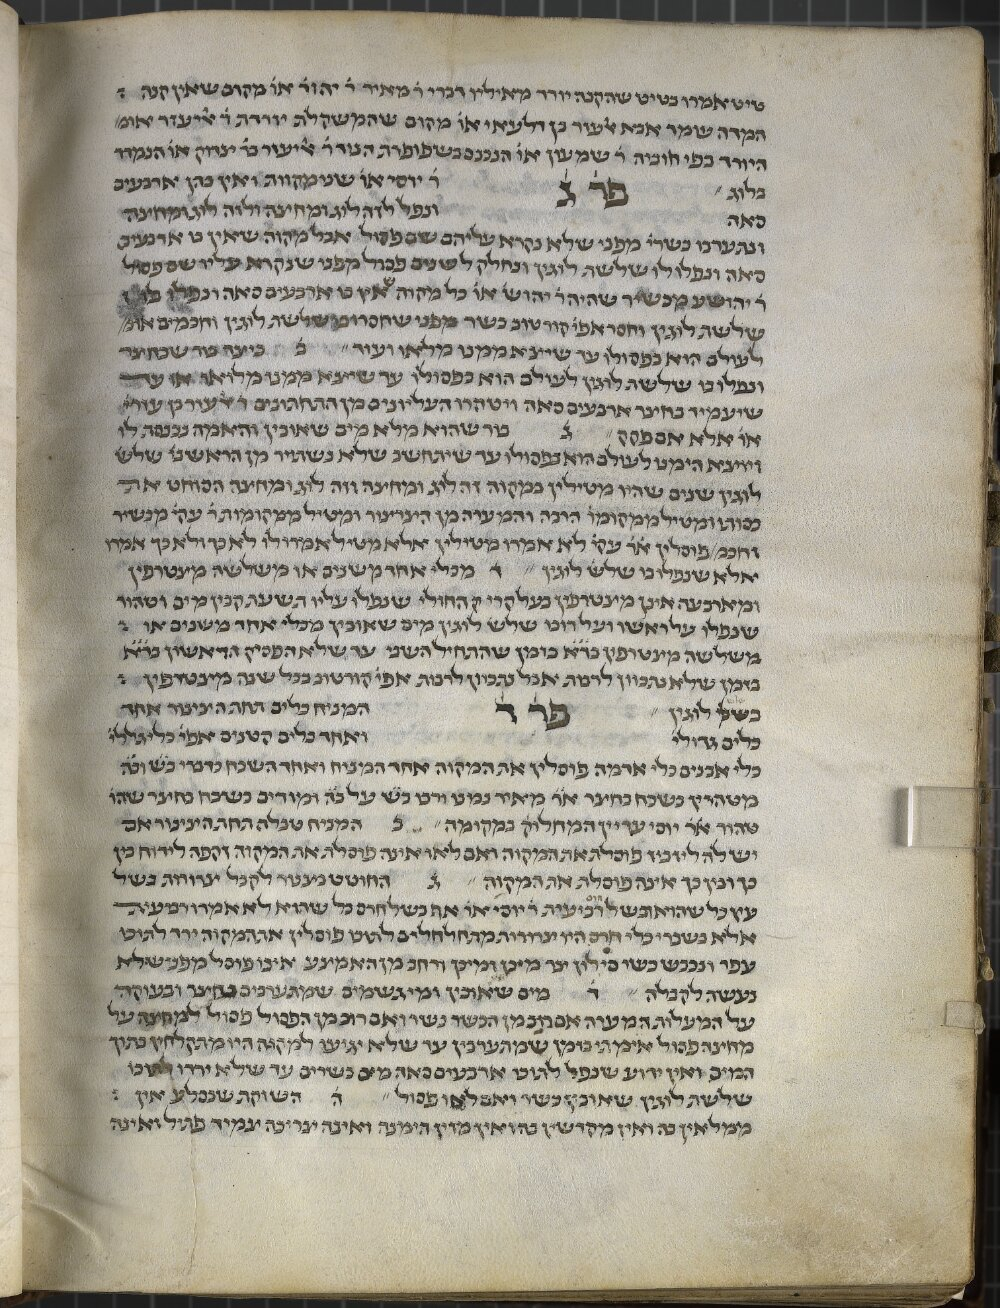 טיט אמרו בטיט שהקנה יורד מאיליו דברי ר׳ מאיר ר׳ יהוד׳ או׳ מקום שאין קנה
המדה שומד אבא אלעזר בן דלעאי או׳ מקום שהמשקלת יורדת ר׳ אליעזר אומ׳
היורד בפי חובית ר׳ שמעון או׳ הנכנס בשפופרת הנוד ר׳ אליעזר בר׳ צדוק או׳ הנמדד
בלוג פר׳ ג׳ ר׳ יוסי או׳ שני מקוות ואין בהן ארבעים
סאה ונפל לזה לוג ומחצה ולזה לוג ומחצה
ונתערבו כשרי׳ מפני שלא נקרא עליהם שם פסול אבל מקוה שאין בו ארבעים
סאה ונפלו לו שלשת לוגין ונחלק לשנים פסול מפני שנקרא עליו שם פסול
ר׳ יהושע מכשיר שהיה ר׳ יהוש׳ או׳ כל מקוה שאין בו ארבעים סאה ונפלו
שלשת לוגין וחסר אפי׳ קורטוב כשר מפני שחסרו שלשת לוגין וחכמים אומ׳
לעולם הוא בפסולו עד שייצא ממנו מלואו ועוד ב׳ כיצד בור שבחצר
ונפלו בו שלשת לוגין לעולם הוא בפסולו עד שיצא ממנו מלואו או עד
שיעמיד בחצר ארבעים סאה ויטהרו העליונים מן התחתונים ר׳ אלעזר בן עזרי׳
או׳ אלא אם פקק ג׳ בור שהוא מלא מים שאובין והאמה נכנסת לו
ויוצא הימנו לעולם הוא בפסולו עד שיתחשב שלא נשתייר מן הראשונ׳ שלש׳
לוגין שנים שהיו מטילין במקוה זה לוג ומחצה וזה לוג ומחצה הסוחט את
כסותו ומטיל ממקומו׳ הרבה והמערה מן הצרצור ומטיל ממקומות ר׳ עקי׳ מכשיר
וחכמ׳ פוסלין א׳ר׳ עקי׳ לא אמרו מטילין אלא מטיל אמרו לו לא כך ולא כך אמרו
אלא שנפלו בו שלש׳ לוגין ד׳ מכלי אחד משנים או משלשה מצטרפין
ומארבעה אינן מצטרפין בעל קרי החולי שנפלו עליו תשעת קבין מים וטהור
שנפלו על ראשו ועל רובו שלש׳ לוגין מים שאובין מכלי אחד משנים או
משלשה מצטרפין כיצד בזמן שהתחיל השני עד שלא הפסיק הראשון
בזמן שלא נתכוון לרבות אבל נתכוון לרבות אפי׳ קורטוב בכל שנה מצטרפין
בשלש׳ לוגין פר׳ ד׳ המניח כלים תחת הצינור אחד
כלים גדולי׳ ואחד כלים קטנים אפי׳ כלי גללי׳
כלי אבנים כלי אדמה פוסלין את המקוה אחד המניח ואחד השכח כדברי ב׳ש׳ וב׳ה׳
מטהרין בשכח בחצר א׳ר׳ מאיר נמנו ורבו ב׳ש׳ על ב׳ה׳ ומודים בשכח בחצר שהו׳
טהור א׳ר׳ יוסי עדיין המחלוק׳ במקומה ב׳ המניח טבלה תחת הצינור אם
יש לה לזביז פוסלת את המקוה ואם לאו אינה פוסלת את המקוה זקפה לידוח בין
כך ובין כך אינה פוסלת את המקוה ג׳ החוטט בצינור לקבל צרורות בשל
עץ כל שהוא ובשל חרס רביעית ר׳ יוסי או׳ אף בשל חרס כל שהוא לא אמרו רביעית
אלא בשברי כלי חרס היו צרורות מתחלחלים לתוכו פוסלין את המקוה ירד לתוכו
עפר ונכבש כשר סילון צר מיכן ומיכן ורחב מן האמצע אינו פוסל מפני שלא
נעשה לקבלה ד׳ מים שאובין ומי גשמים שמתערבים בחצר ובעוקה
על המעלות המערה אם רוב מן הכשר כשר ואם רוב מן הפסול פסול למחצה על
מחצה פסול אימתי בזמן שמתערבין עד שלא יגיעו למקוה היו מתקלחין בתוך
המים ואין ידוע שנפל לתוכו ארבעים סאה מים כשרים עד שלא ירדו לתוכו
שלשת לוגין שאובין כשר ואם לאו פסול ה׳ השוקת שבסלע אין
ממלאין בה ואין מקדשין בה ואין מזין הימנה ואינה צריכה צמיד פתיל ואינה